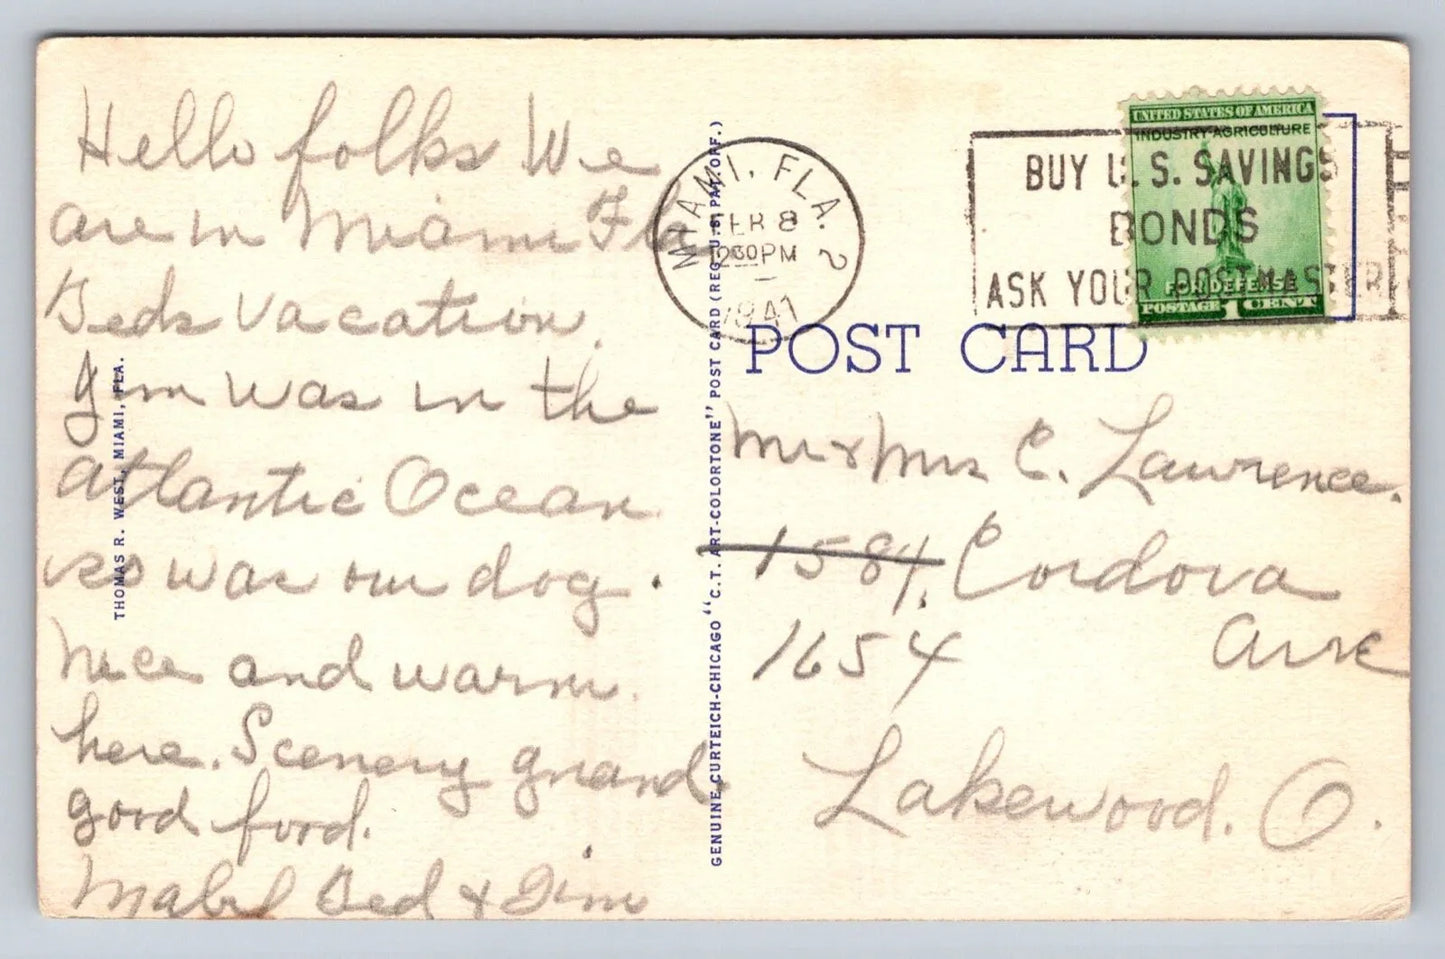 Hello folks We
are in Miami Fla
Teds vacation.
Jim was in the
Atlantic Ocean
so was our dog.
Nice and warm
here. Scenery grand,
good food.
Mabel Ted & Jim
THOMAS R. WEST, MIAMI, FLA.
GENUINE CURTEICH-CHICAGO "C.T. ART-COLORTONE" POST CARD (REG. U.S. PAT. OFF.)
MIAMI, FLA. 2
FEB 8
230PM
1941
BUY U.S. SAVINGS
BONDS
ASK YOUR POSTMASTER
UNITED STATES OF AMERICA
INDUSTRY-AGRICULTURE
FOR DEFENSE
POSTAGE 1 CENT
POST CARD
Mr & Mrs C. Lawrence.
1584 Cordova
1654 Ave
Lakewood. O.